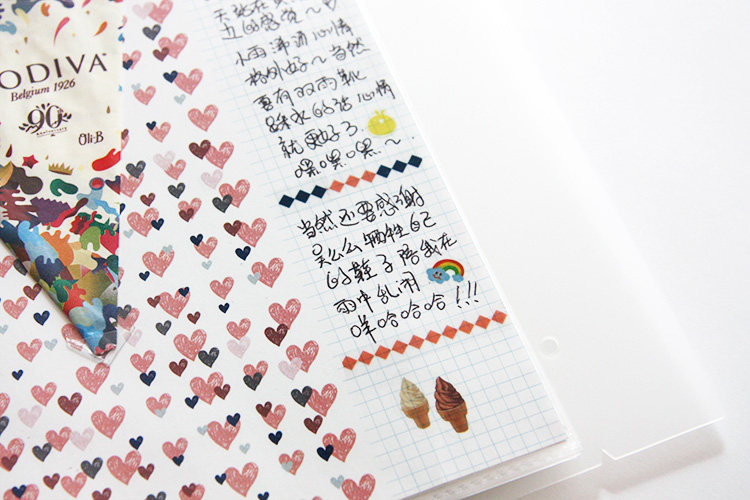 ODIVA
Belgium 1926
90th
Anniversary
Oli-B
小雨沸沸心情
格外好～当然
要有双雨靴
踩水的话心情
就更好了.
嘿嘿嘿～.
当然还要感谢
吴么么牺牲自己
的鞋子陪我在
雨中乱闹
咩哈哈哈!!!